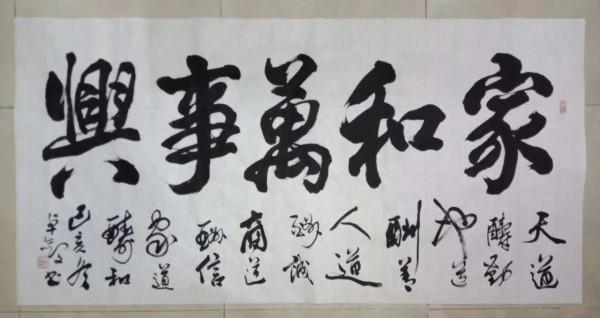 家和萬事興
天道
醻勤
地道
酬善
人道
酬誠
商道
酬信
家道
醻和
己亥冬